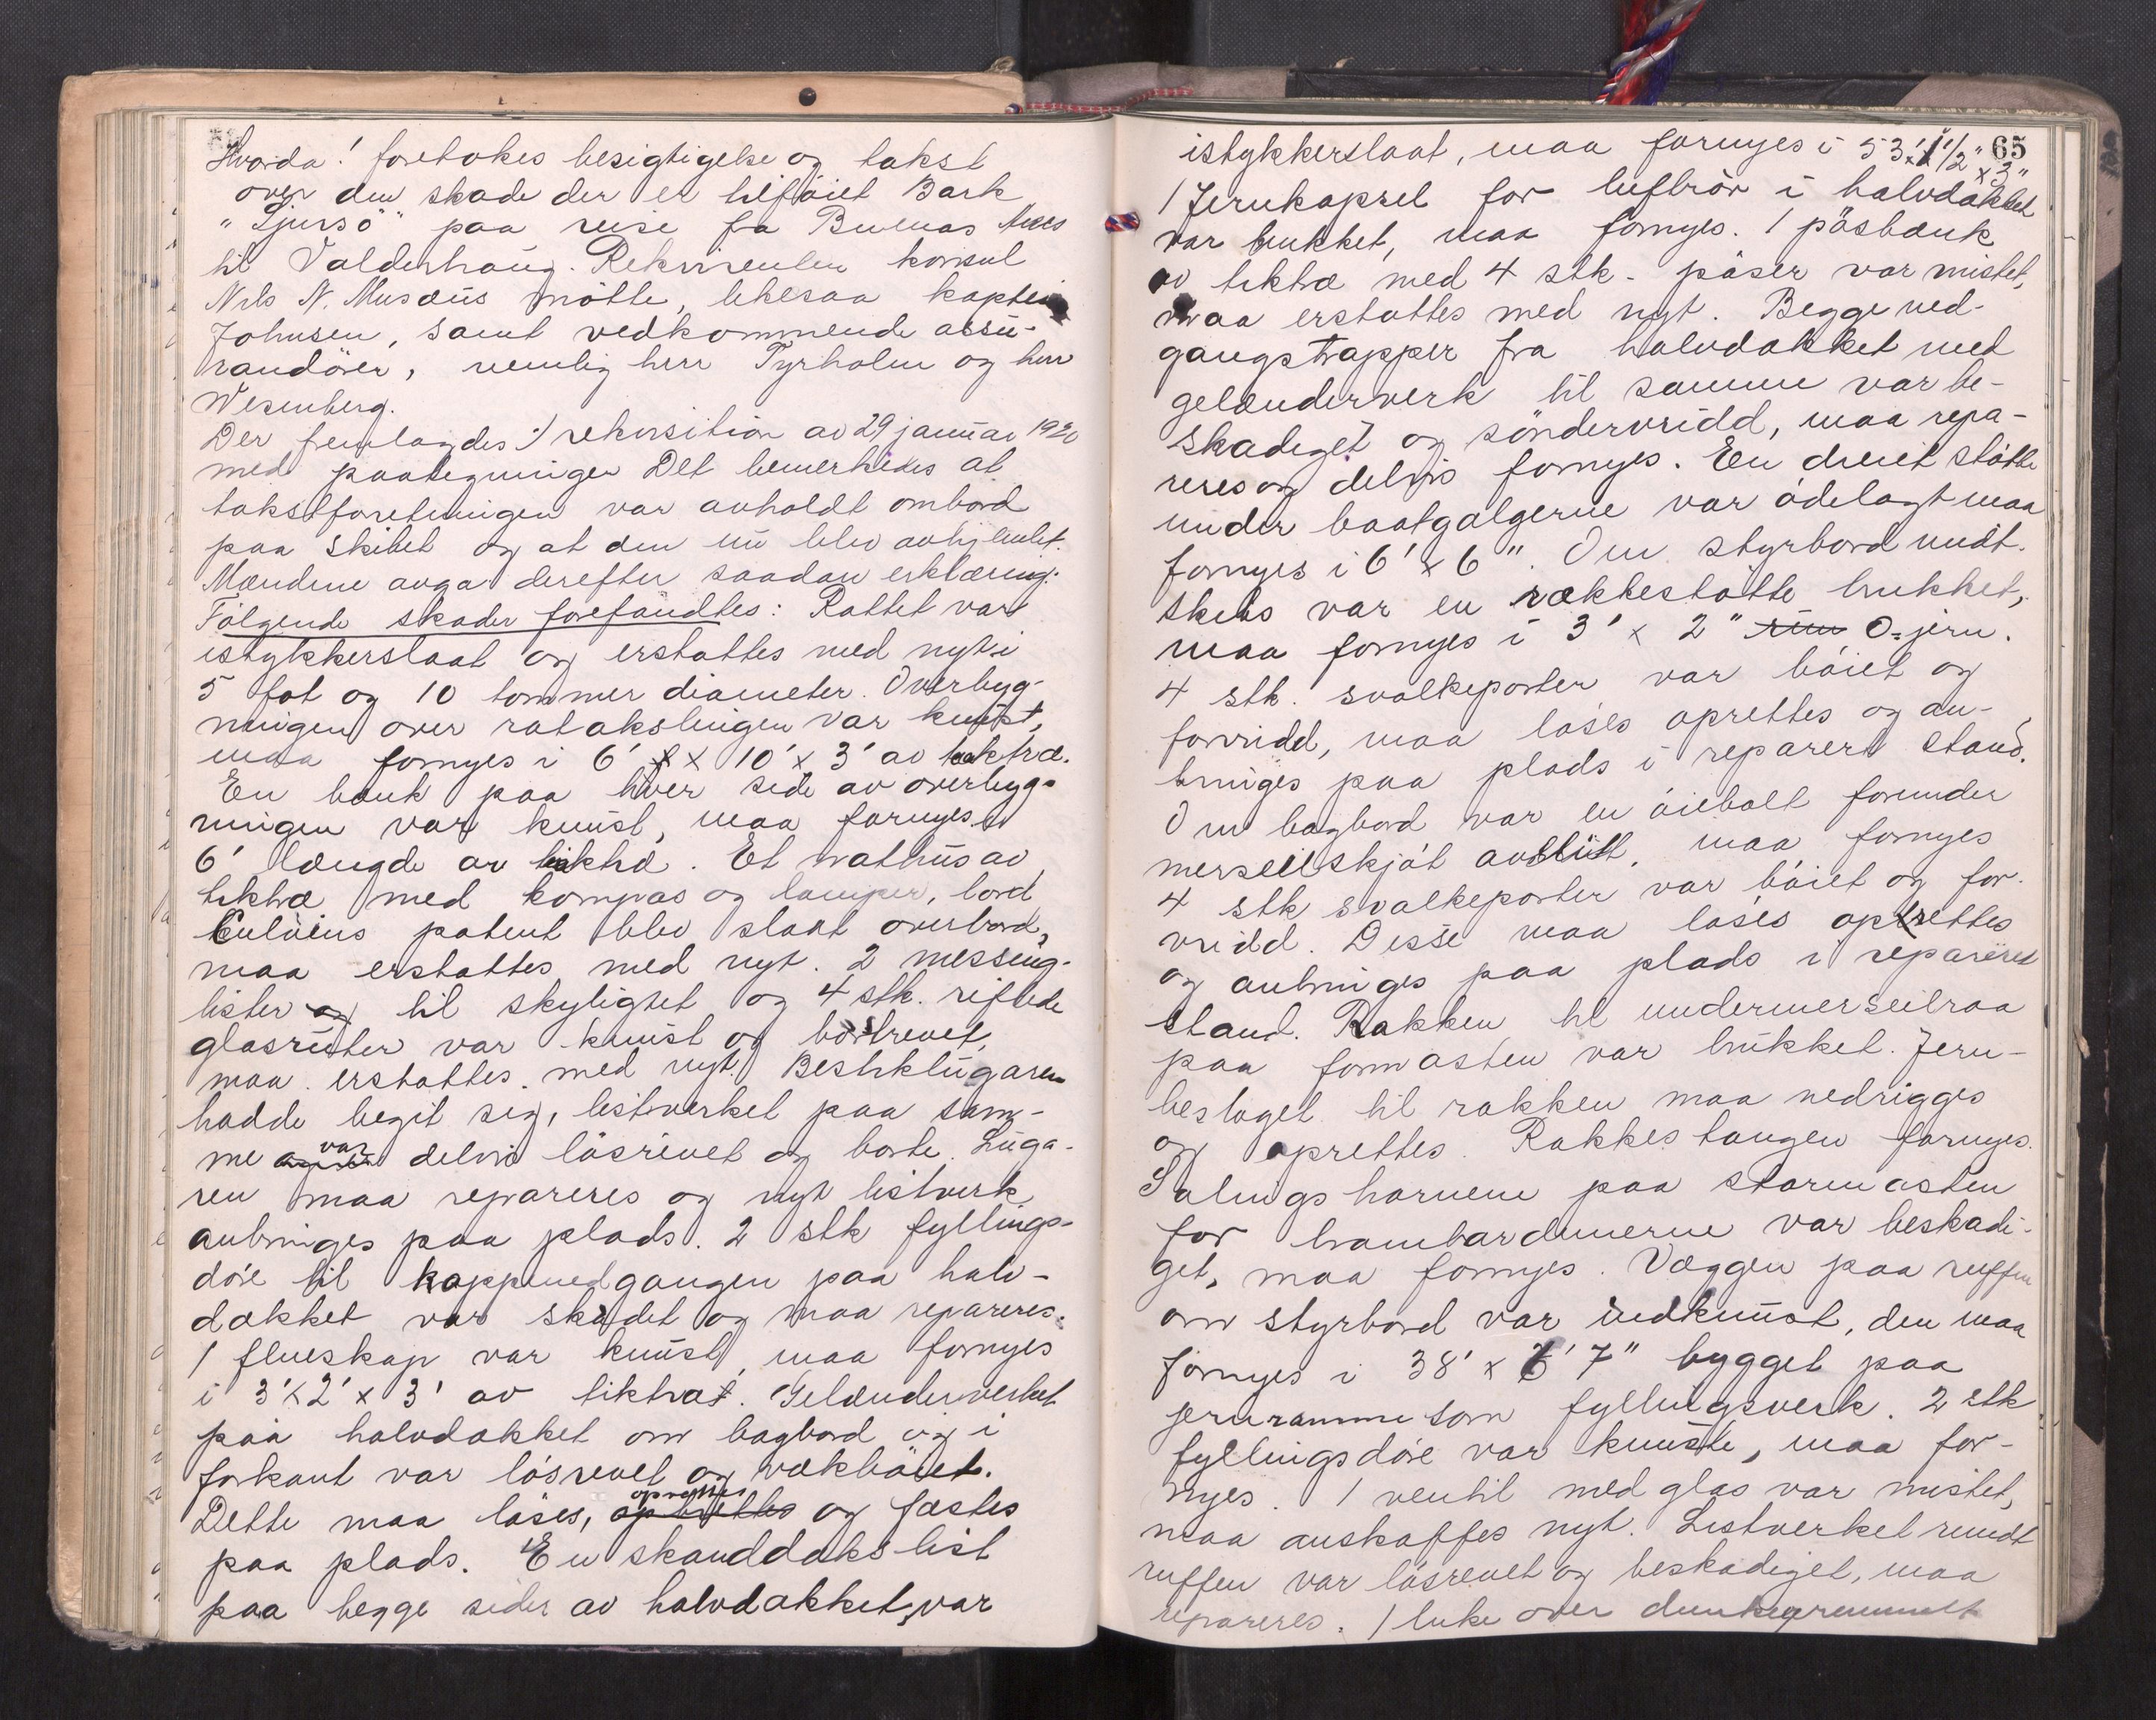 Hvorda! foretokes besigtigelse og takst
over den skade der er tilföiet Bark
"Ljursö" paa reise fra Buenas Aires
til Valderhaug. Rekvirenten konsul
Nils N. Musæus mötte, likesaa kaptein
Johnsen, samt vedkommende assu-
randörer, nemlig herr Tyrholm og herr
Wesenberg.
Der fremlagdes :/ rekvisition av 29 januar 1920
med paategninger Det bemerkedes at
takstforretningen var avholdt ombord
paa skibet og at den nu blev avhjemlet.
Mændene avga derefter saadan erklæring:
Fölgende skader forefandtes: Rattet var
istykkerslaat og erstattes med nyt i
5 fot og 10 tommer diameter. Overbyg-
ningen over ratakslingen var knust,
maa fornyes i 6' x 10' x 3' av teaktræ.
En bænk paa hver side av overbyg-
ningen var knust, maa fornyes i
6' længde av tiktræ. Et nathus av
tiktræ med kompas og lamper, lord
Kelvins patent blev slaat overbord,
maa erstattes med nyt. 2 messing-
lister og til skylightet og 4 stk. riflede
glasruter var knust og bortrevet,
maa erstattes med nyt. Bestiklugaren
hadde begit sig, listverket paa sam-
me var delvis lösrivet og borte. Luga-
ren maa repareres og nyt listverk
anbringes paa plads. 2 stk fyllings-
döre til kappnedgangen paa halv-
dækket var skadet og maa repareres.
1 flueskap var knust, maa fornyes
i 3' x 2' x 3' av tiktræ. Gelænderverket
paa halvdækket om bagbord og i
forkant var lösrevet og vækböiet.
Dette maa löses, oprettes og fæstes
paa plads. En skanddæks list
paa begge sider av halvdækket, var
65
istykkerslaat, maa fornyes i 53' x 1 1/2" x 3"
1 Jernkapsel for luftrör i halvdækket
var brukket, maa fornyes. 1 pösbænk
av tiktræ med 4 stk. pöser var mistet,
maa erstattes med nyt. Begge ned-
gangstrapper fra halvdækket med
gelænderverk til samme var be-
skadiget og söndervridd, maa repa-
reres og delvis fornyes. En dreiet stötte
under baatgalgerne var ödelagt maa
fornyes i 6' x 6". Om styrbord midt-
skibs var en rækkestötte brukket,
maa fornyes i 3' x 2" O-jern.
4 stk. svalkeporter var böiet og
forvridd, maa löses oprettes og an-
bringes paa plads i reparert stand.
Om bagbord var en öiebolt forunder
merseilskjöt avslitt, maa fornyes
4 stk svalkeporter var böiet og for-
vridd. Disse maa löses oprettes
og anbringes paa plads i reparert
stand. Rakken til undermerseilraa
paa formasten var brukket. Jern-
beslaget til rakken maa nedrigges
og oprettes. Rakkestangen fornyes.
Salingshornene paa stormasten
for brambardunerne var beskadi-
get, maa fornyes. Væggen paa ruffen
om styrbord var indknust, den maa
fornyes i 38' x 6' 7" bygget paa
jernramme som fyllingsverk. 2 stk
fyllingsdöre var knuste, maa for-
nyes. 1 ventil med glas var mistet,
maa anskaffes nyt. Listverket rundt
ruffen var lösrevet og beskadiget, maa
repareres. 1 luke over